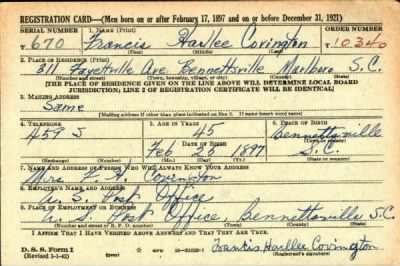 REGISTRATION CARD—(Men born on or after February 17, 1897 and on or before December 31, 1921)
SERIAL NUMBER 1. NAME (Print) ORDER NUMBER
T 670 Francis Harllee Covington T 10,340
(First) (Middle) (Last)
2. PLACE OF RESIDENCE (Print)
311 Fayettville Ave Bennettsville Marlboro S.C.
(Number and street) (Town, township, village, or city) (County) (State)
[THE PLACE OF RESIDENCE GIVEN ON THE LINE ABOVE WILL DETERMINE LOCAL BOARD
JURISDICTION; LINE 2 OF REGISTRATION CERTIFICATE WILL BE IDENTICAL]
3. MAILING ADDRESS
Same
[Mailing address if other than place indicated on line 2. If same insert word same]
4. TELEPHONE 5. AGE IN YEARS 6. PLACE OF BIRTH
459 J 45 Bennettsville
DATE OF BIRTH (Town or county)
Feb 28 1897 S.C.
(Exchange) (Number) (Mo.) (Day) (Yr.) (State or country)
7. NAME AND ADDRESS OF PERSON WHO WILL ALWAYS KNOW YOUR ADDRESS
Mrs. F. H. Covington
8. EMPLOYER'S NAME AND ADDRESS
U.S. Post Office
9. PLACE OF EMPLOYMENT OR BUSINESS
U.S. Post Office, Bennettsville S.C.
(Number and street or R. F. D. number) (Town) (County) (State)
I AFFIRM THAT I HAVE VERIFIED ABOVE ANSWERS AND THAT THEY ARE TRUE.
D. S. S. Form 1
(Revised 1-1-42) (over)
Francis Harllee Covington
(Registrant's signature)